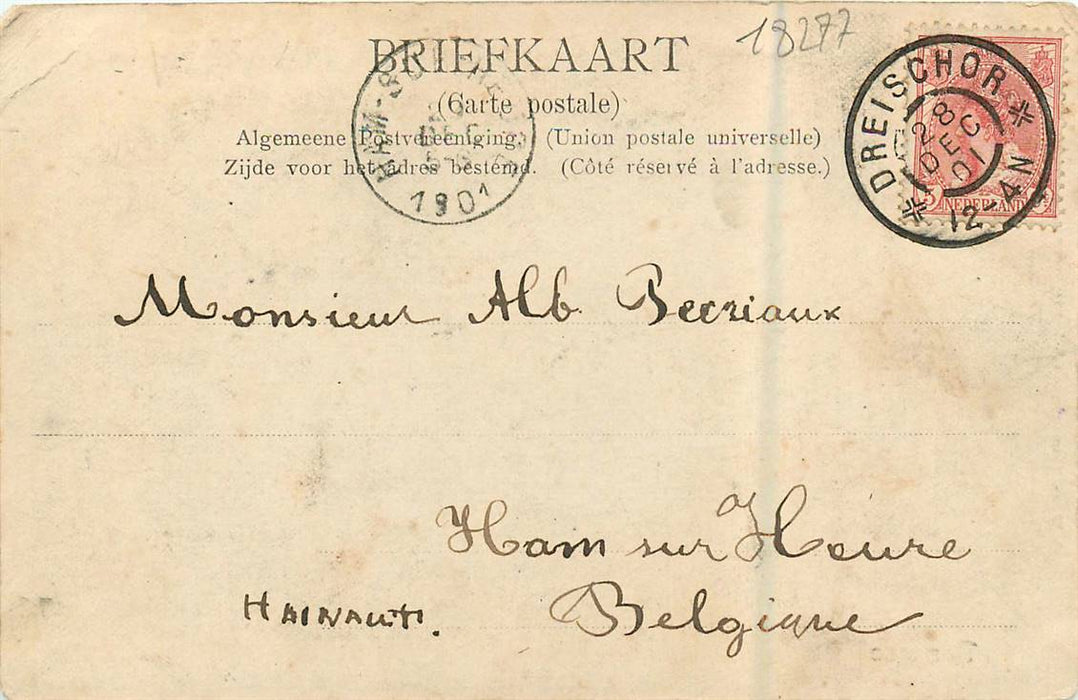 18277
BRIEFKAART
(Carte postale)
Algemeene Postvereeniging. (Union postale universelle)
Zijde voor het adres bestemd. (Côté réservé à l'adresse.)
HAM-S
1901
DREISCHOR
28
DEC
01
12-4N
NEDERLAND
Monsieur Alb Becriaux
Ham sur Heure
HAINAUT.
Belgique